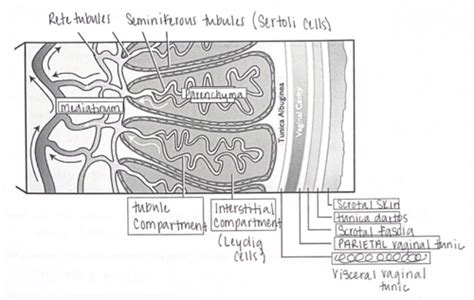 Rete tubules
Seminiferous tubules (Sertoli cells)
Mediastinum
Parenchyma
Tunica Albuginea
Vaginal Cavity
tubule
compartment
Interstitial
compartment
(Leydig
cells)
Scrotal Skin
tunica dartos
Scrotal fascia
PARIETAL vaginal tunic
Visceral vaginal
tunic